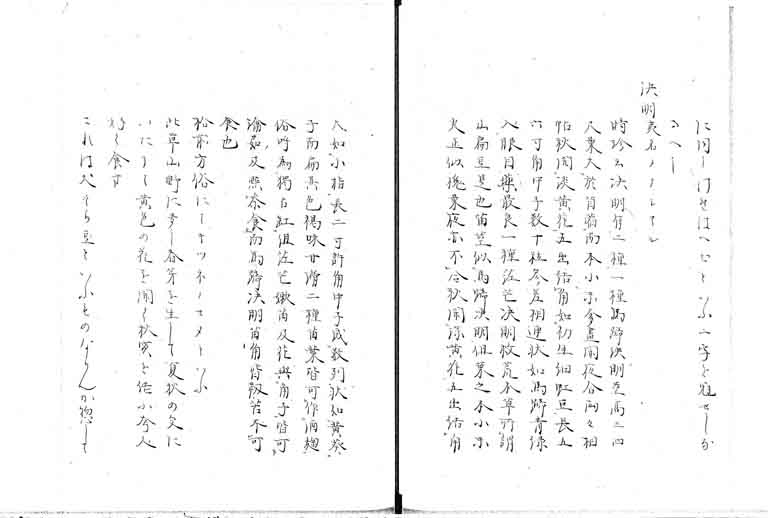 に同し何せはへひといふ二字を冠せしな
るへし
決明 夷名
時珍云決明有二種一種馬蹄決明茎高三四
尺葉大於苜蓿而本小末奓昼開夜合両々相
帖秋開淡黄花五出結角如初生細豇豆長五
六寸角中子数十粒参差相連状如馬蹄青緑
入眼目薬最良一種茳芒決明救荒本草所謂
山扁豆是也苗茎似馬蹄決明但葉之本小末
尖正似槐葉夜亦不合秋開深黄花五出結角
大如小指長二寸許角中子成数列状如黄葵
子而扁其色褐味甘滑二種苗葉皆可作酒麹
俗呼為独占缸但茳芒嫩苗及花与角子皆可
瀹茹及点茶食而馬蹄決明苗角皆靱苦不可
食也
松前方俗にキツネノマメといふ
此草山野に多し春芽を生して夏秋の交に
いたりて黄色の花を開く秋実を結ふ夷人
好て食す
これは犬そら豆といふものならんか惣して